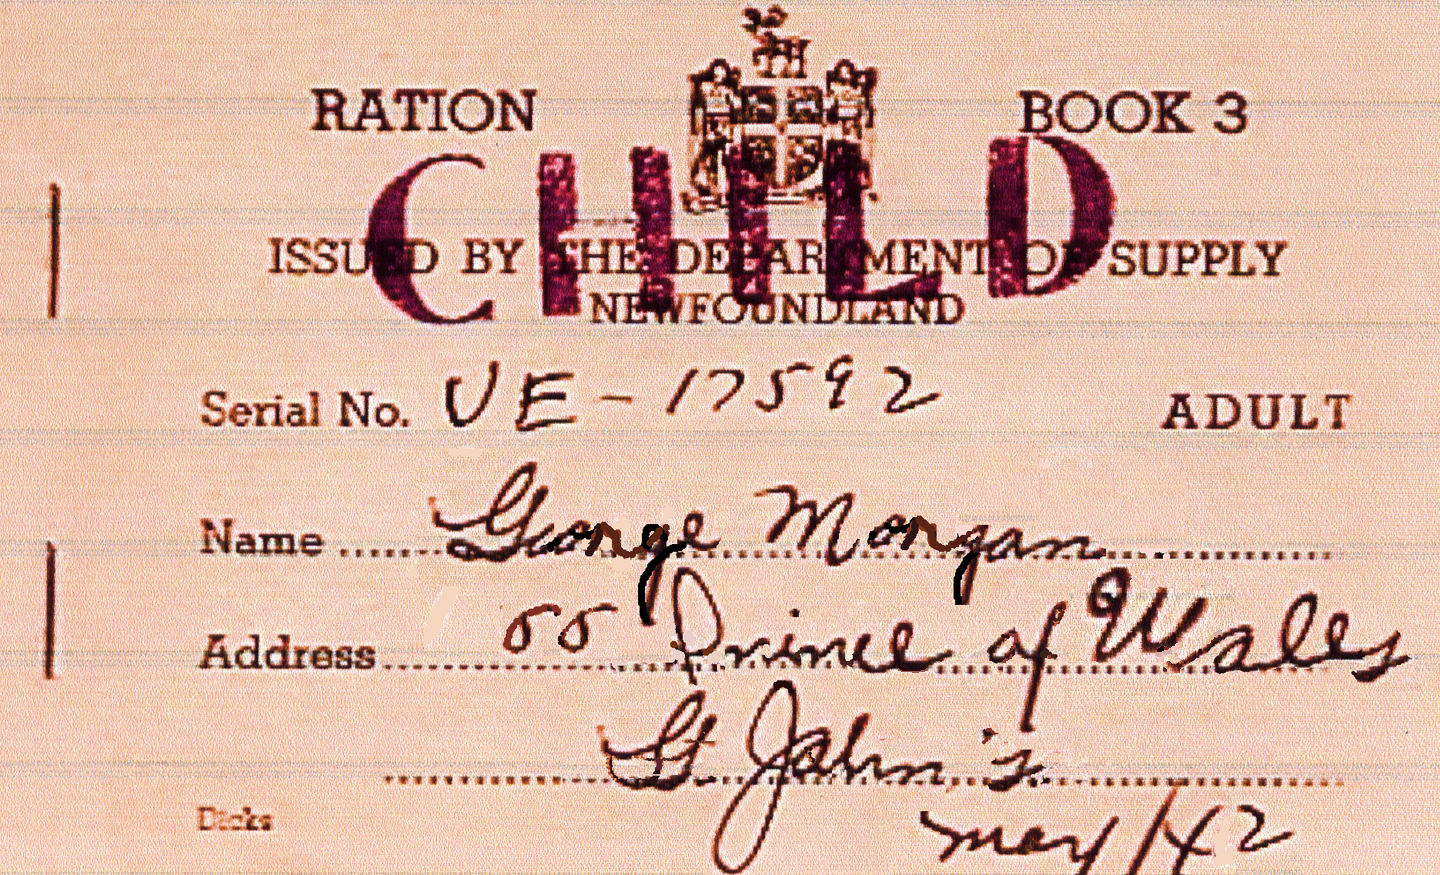 RATION BOOK 3
CHILD
ISSUED BY THE DEPARTMENT OF SUPPLY
NEWFOUNDLAND
Serial No. UE-17592 ADULT
Name George Morgan
Address 55 Prince of Wales
St. John's
Dicks
May/42